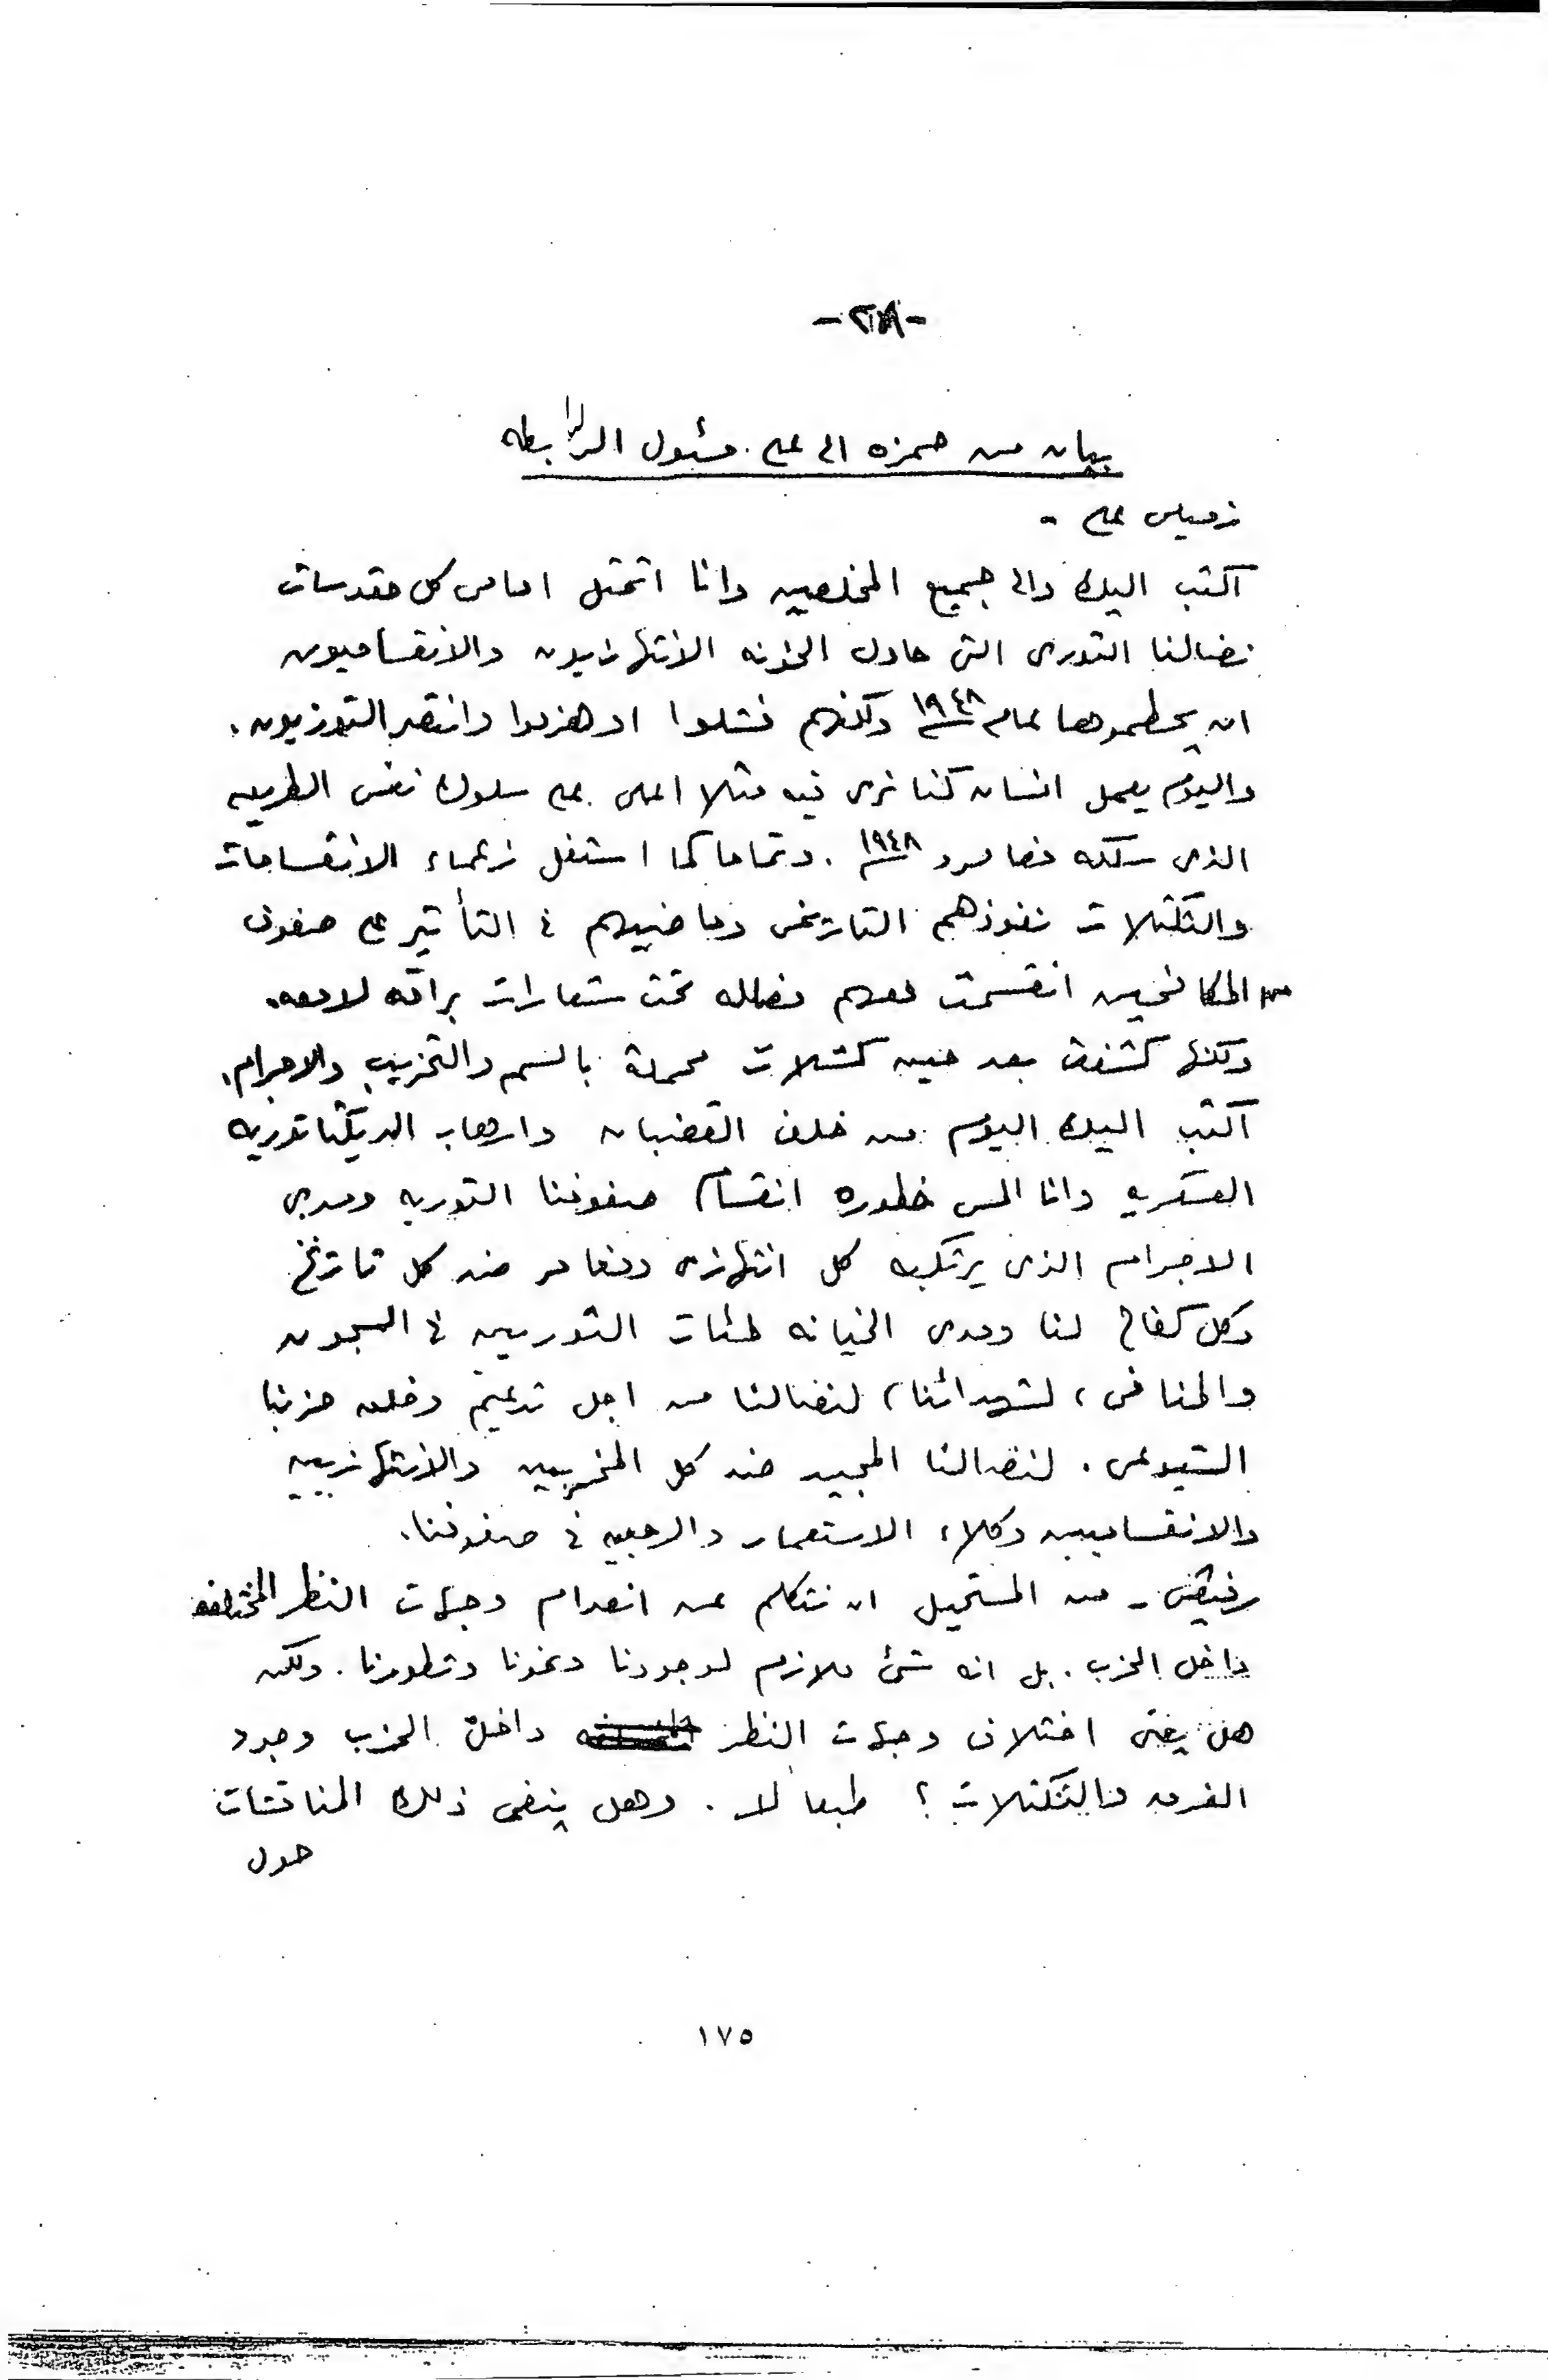 -٢٥٨-
بيان من حمزه الى على. مسئول الرابطه
زميلى على -
اكتب اليك والى جميع المخلصين وانا اتمثل امامى كل مقدسات
نضالنا الثورى التى حاول الخونه الانتهازيون والانقساميون
ان يحطموها عام ١٩٤٨ ولكنهم فشلوا وهزموا وانتصر الثوريون.
واليوم يعمل انسان كنا نرى فيه مثلا اعلى على سلوك نفس الطريق
الذى سلكه مغامرو ١٩٤٨. وتماما كما استغل زعماء الانقسامات
والتكتلات نفوذهم التاريخى وماضيهم فى التأثير على صفوف
من المكافحين انقسمت معهم مضلله تحت شعارات براقه لامعه.
ولكنها كشفت بعد حين كتكتلات محملة بالسم والتخريب والاجرام.
اكتب اليك اليوم من خلف القضبان وارهاب الديكتاتوريه
العسكريه وانا المس خطوره انقسام صفوفنا الثوريه ومدى
الاجرام الذى يرتكبه كل انتهازى ومغامر ضد كل تاريخ
وكل كفاح لنا ومدى الخيانه لمئات الثوريين فى السجون
والمنافى، لشهدائنا، لنضالنا من اجل تدعيم وخلق حزبنا
الشيوعى. لنضالنا المجيد ضد كل المخربين والانتهازيين
والانقساميين وكلاء الاستعمار والرجعيه فى صفوفنا.
رفيقى - من المستحيل ان نتكلم عن انعدام وجهات النظر المختلفه
داخل الحزب. بل انه شئ ملازم لوجودنا ونمونا وتطورنا. ولكن
هل يعنى اختلاف وجهات النظر داخل الحزب وجود
الفرق والتكتلات؟ طبعا لا. وهل ينفى ذلك المناقشات
حول
١٧٥